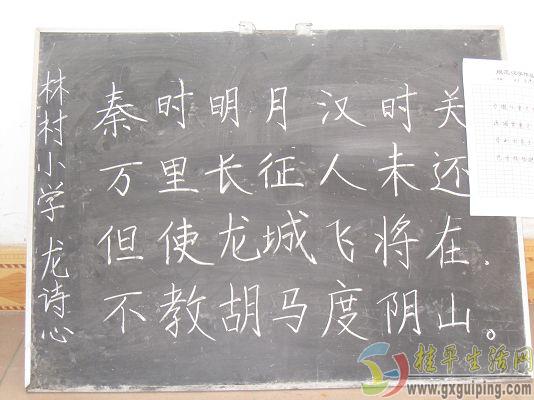 林村小学 龙诗心
秦时明月汉时关
万里长征人未还
但使龙城飞将在.
不教胡马度阴山。
桂平生活网
www.gxguiping.com